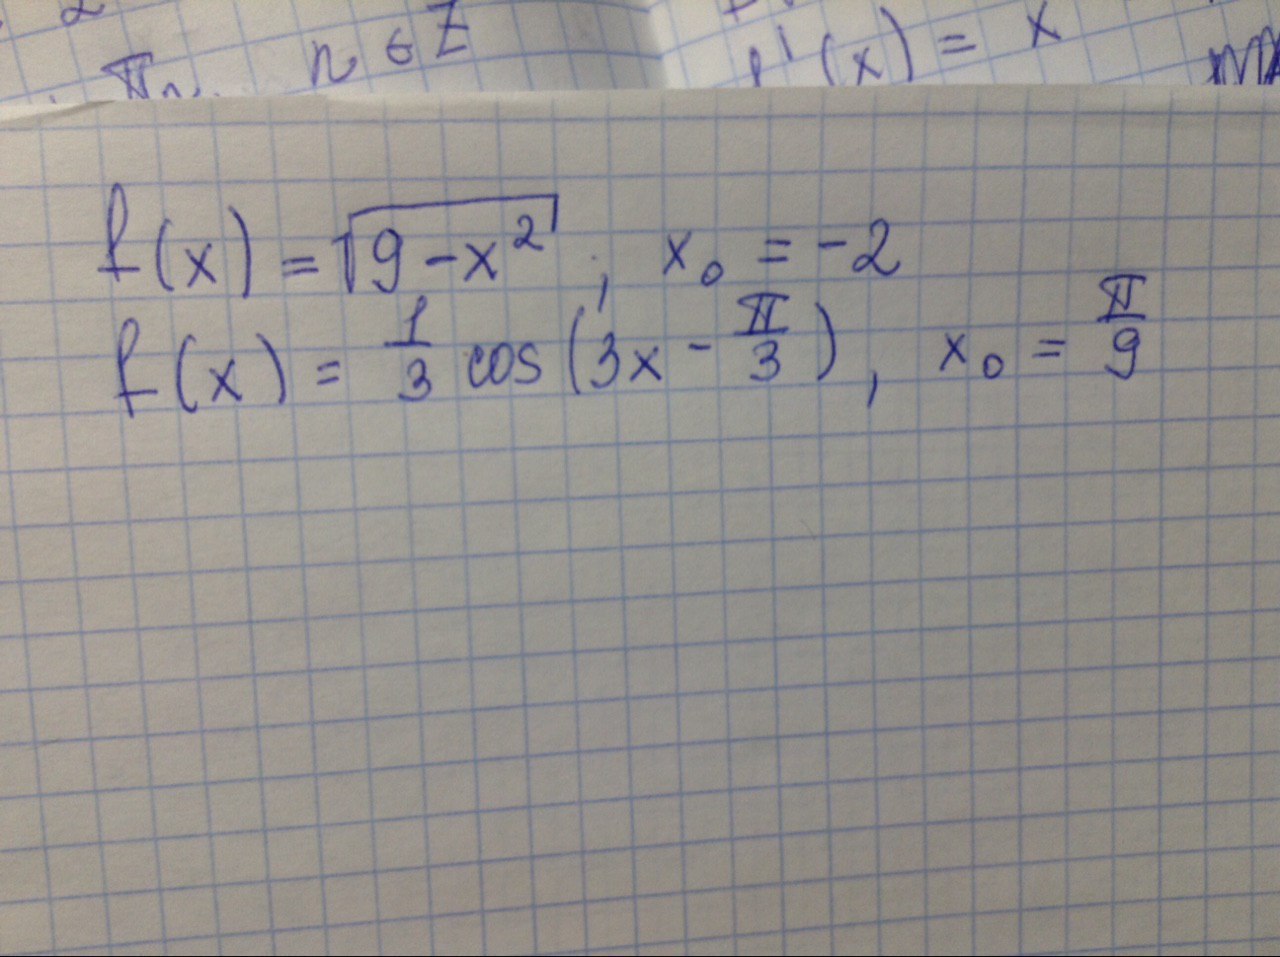 2
πn, n ∈ Z
f'(x) = x
f(x) = √(9-x²) ; x₀ = -2
f(x) = 1/3 cos(3x - π/3), x₀ = π/9